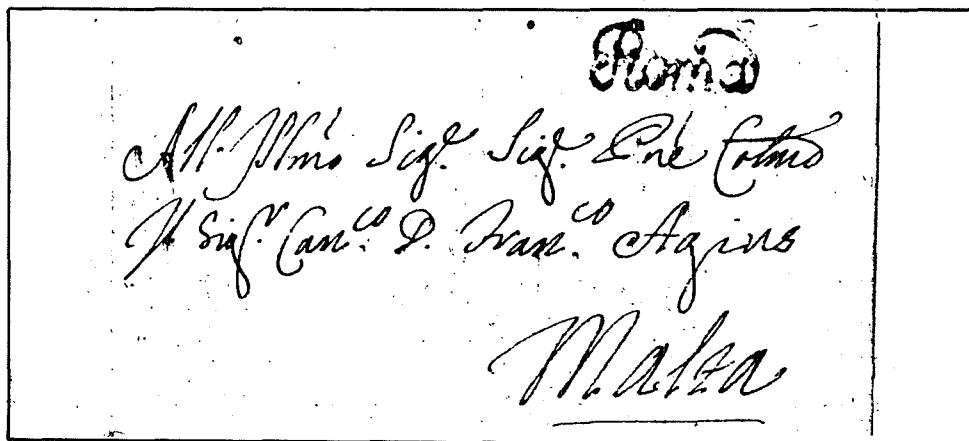 Roma
All'Illmo Sigr. Sigr. Pne Colmo
Il Sigr. Canco. D. Franco. Agius
Malta